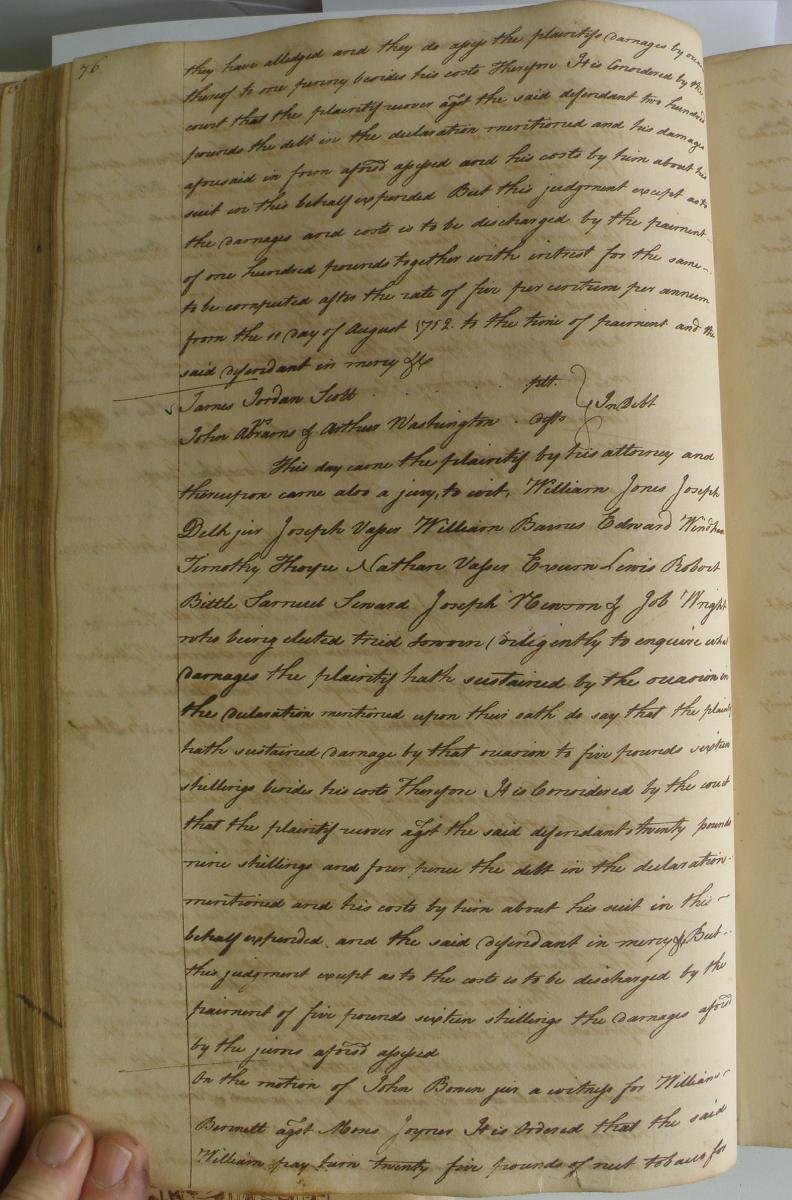 76
they have alledged and they do assess the plaintifs damages by
thereof to one penny besides his costs Therefore It is Considered by the
court that the plaintif recover agst the said defendant two hundred
pounds the debt in the declaration mentioned and his damages
aforesaid in form aforsd assessed and his costs by him about his
suit in this behalf expended But this judgment except as to
the damages and costs is to be discharged by the paiment
of one hundred pounds together with intrest for the same
to be computed after the rate of five per centum per annum
from the 11 day of August 1752. to the time of paiment and the
said defendant in mercy &c
James Jordan Scott . . . . plt.
John Abrams & Arthur Washington . defts } In Debt
This day came the plaintif by his attorney and
thereupon came also a jury, to wit, William Jones Joseph
Delk jur Joseph Vasser William Barnes Edward Windham
Timothy Thorpe Nathan Vasser Exum Lewis Robert
Bittle Samuel Seward Joseph Newson & Job Wright
who being elected tried sworn diligently to enquire what
damages the plaintif hath sustained by the occasion in
the declaration mentioned upon their oath do say that the plaintif
hath sustained damage by that occasion to five pounds sixteen
shillings besides his costs Therefore It is Considered by the court
that the plaintif recover agst the said defendants twenty pounds
nine shillings and four pence the debt in the declaration
mentioned and his costs by him about his suit in this
behalf expended. and the said defendant in mercy & But
this judgment except as to the costs is to be discharged by the
paiment of five pounds sixteen shillings the damages aforsd
by the jurors aforsd assessed
On the motion of John Bowen jur a witness for William
Bennett agst Moses Joyner It is Ordered that the said
William pay him twenty five pounds of nett tobacco for